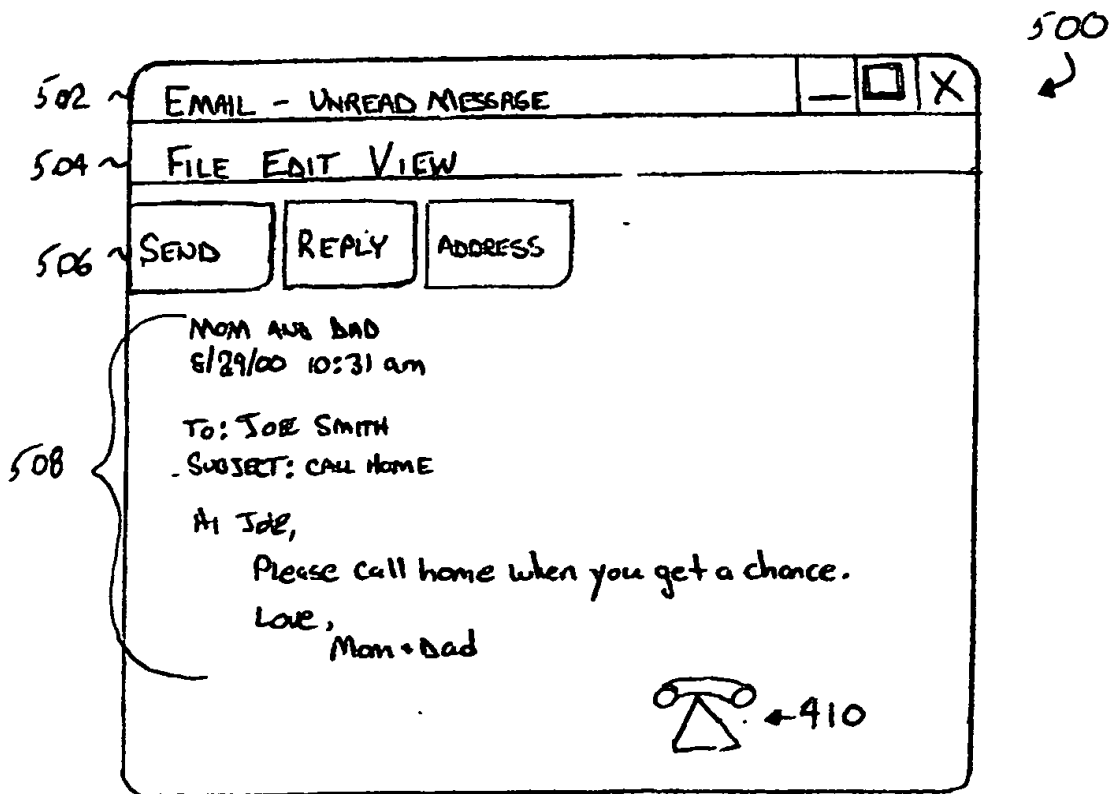 500
502 EMAIL - UNREAD MESSAGE X
504 FILE EDIT VIEW
506 SEND REPLY ADDRESS
MOM AND DAD
8/29/00 10:31 am
TO: JOE SMITH
508
SUBJECT: CALL HOME
Hi Joe,
Please call home when you get a chance.
Love,
Mom + Dad
410